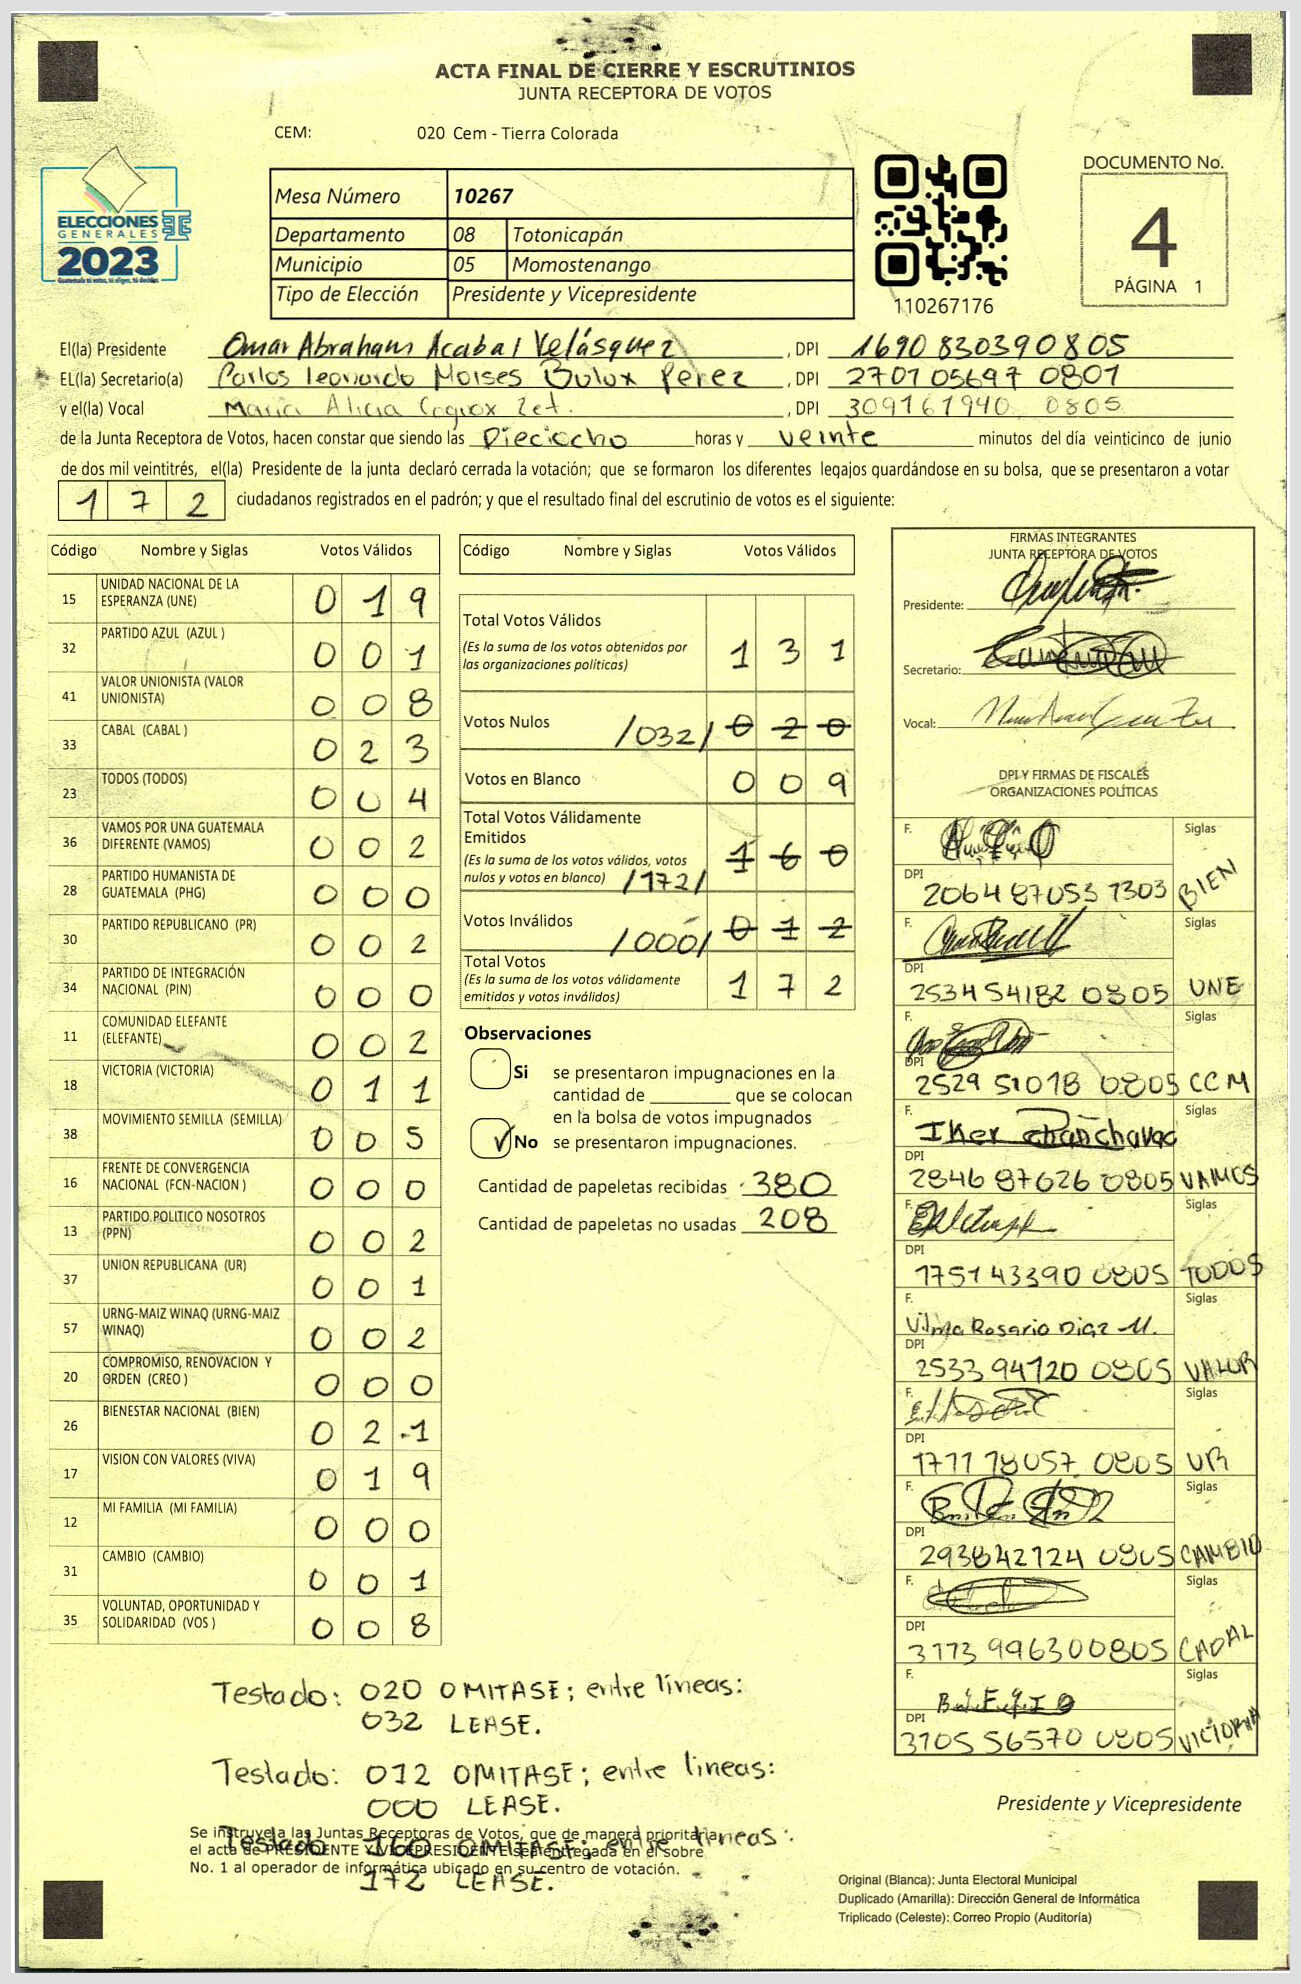 ACTA FINAL DE CIERRE Y ESCRUTINIOS
JUNTA RECEPTORA DE VOTOS
CEM: 020 Cem - Tierra Colorada
ELECCIONES
GENERALES
2023
Mesa Número 10267
Departamento 08 Totonicapán
Municipio 05 Momostenango
Tipo de Elección Presidente y Vicepresidente
110267176
DOCUMENTO No.
4
PÁGINA 1
El(la) Presidente Omar Abraham Acabal Velásquez, DPI 1690 83039 0805
EL(la) Secretario(a) Carlos Leonardo Moises Bulux Perez, DPI 2701 05697 0801
y el(la) Vocal Maria Alicia Zet., DPI 309161940 0805
de la Junta Receptora de Votos, hacen constar que siendo las Dieciocho horas y veinte minutos del día veinticinco de junio
de dos mil veintitrés, el(la) Presidente de la junta declaró cerrada la votación; que se formaron los diferentes legajos guardándose en su bolsa, que se presentaron a votar
172 ciudadanos registrados en el padrón; y que el resultado final del escrutinio de votos es el siguiente:
Código Nombre y Siglas Votos Válidos
15 UNIDAD NACIONAL DE LA ESPERANZA (UNE) 0 1 9
32 PARTIDO AZUL (AZUL ) 0 0 1
41 VALOR UNIONISTA (VALOR UNIONISTA) 0 0 8
33 CABAL (CABAL ) 0 2 3
23 TODOS (TODOS) 0 0 4
36 VAMOS POR UNA GUATEMALA DIFERENTE (VAMOS) 0 0 2
28 PARTIDO HUMANISTA DE GUATEMALA (PHG) 0 0 0
30 PARTIDO REPUBLICANO (PR) 0 0 2
34 PARTIDO DE INTEGRACIÓN NACIONAL (PIN) 0 0 0
11 COMUNIDAD ELEFANTE (ELEFANTE) 0 0 2
18 VICTORIA (VICTORIA) 0 1 1
38 MOVIMIENTO SEMILLA (SEMILLA) 0 0 5
16 FRENTE DE CONVERGENCIA NACIONAL (FCN-NACION ) 0 0 0
13 PARTIDO POLITICO NOSOTROS (PPN) 0 0 2
37 UNION REPUBLICANA (UR) 0 0 1
57 URNG-MAIZ WINAQ (URNG-MAIZ WINAQ) 0 0 2
20 COMPROMISO, RENOVACION Y ORDEN (CREO ) 0 0 0
26 BIENESTAR NACIONAL (BIEN) 0 2 1
17 VISION CON VALORES (VIVA) 0 1 9
12 MI FAMILIA (MI FAMILIA) 0 0 0
31 CAMBIO (CAMBIO) 0 0 1
35 VOLUNTAD, OPORTUNIDAD Y SOLIDARIDAD (VOS ) 0 0 8
Código Nombre y Siglas Votos Válidos
Total Votos Válidos
(Es la suma de los votos obtenidos por
las organizaciones políticas) 1 3 1
Votos Nulos /032/ 0 2 0
Votos en Blanco 0 0 9
Total Votos Válidamente
Emitidos
(Es la suma de los votos válidos, votos
nulos y votos en blanco) /172/ 1 6 0
Votos Inválidos /000/ 0 1 2
Total Votos
(Es la suma de los votos válidamente
emitidos y votos inválidos) 1 7 2
Observaciones
Si se presentaron impugnaciones en la
cantidad de ________ que se colocan
en la bolsa de votos impugnados
No se presentaron impugnaciones.
Cantidad de papeletas recibidas 380
Cantidad de papeletas no usadas 208
FIRMAS INTEGRANTES
JUNTA RECEPTORA DE VOTOS
Presidente:
Secretario:
Vocal:
DPI Y FIRMAS DE FISCALES
ORGANIZACIONES POLÍTICAS
F. Siglas
DPI 2064 87053 1303 BIEN
F. Siglas
DPI 2534 54182 0805 UNE
F. Siglas
DPI 2529 51018 0805 CCM
F. Iker Chanchavac Siglas
DPI 2846 87626 0805 VAMOS
F. Siglas
DPI 1751 43390 0805 TODOS
F. Vilma Rosario Diaz M. Siglas
DPI 2533 94120 0805 VALOR
F. Siglas
DPI 1771 78057 0805 UR
F. Siglas
DPI 2938 42124 0805 CAMBIO
F. Siglas
DPI 3173 99630 0805 CABAL
F. Siglas
DPI 3105 56570 0805 VICTORIA
Presidente y Vicepresidente
Testado: 020 OMITASE; entre líneas:
032 LEASE.
Testado: 012 OMITASE; entre lineas:
000 LEASE.
Testado 160 OMITASE; entre lineas:
172 LEASE.
Se instruye a las Juntas Receptoras de Votos, que de manera prioritaria,
el acta de PRESIDENTE Y VICEPRESIDENTE sea entregada en el sobre
No. 1 al operador de informática ubicado en su centro de votación.
Original (Blanca): Junta Electoral Municipal
Duplicado (Amarilla): Dirección General de Informática
Triplicado (Celeste): Correo Propio (Auditoría)